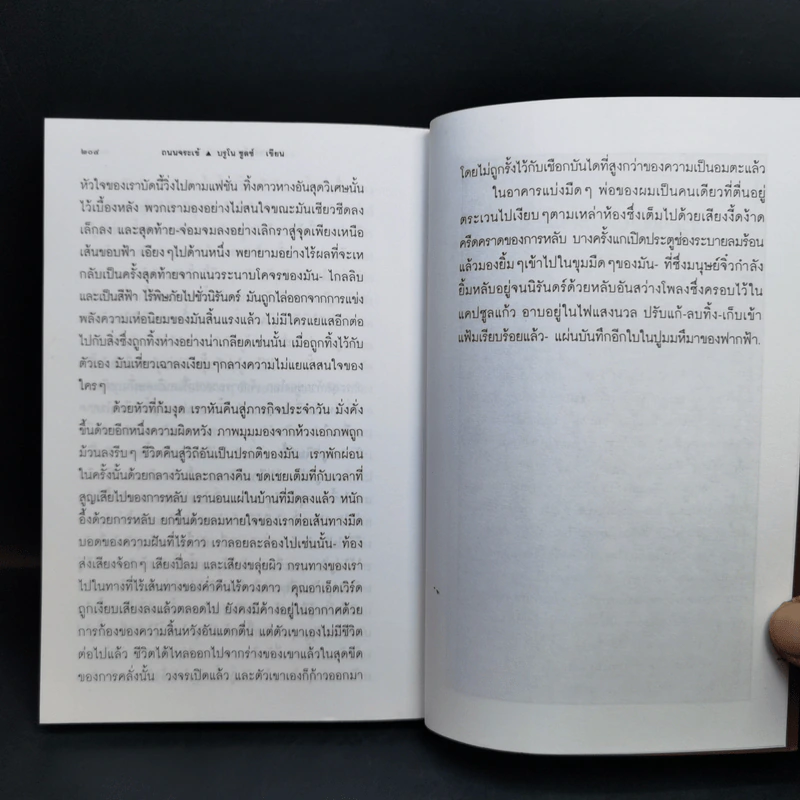 ๒๐๘ ถนนจระเข้ ▲ บรูโน ชูลซ์ เขียน
หัวใจของเราบัดนี้วิ่งไปตามแฟชั่น ทิ้งดาวหางอันสุดวิเศษนั้น
ไว้เบื้องหลัง พวกเรามองอย่างไม่สนใจขณะมันเซียวซีดลง
เล็กลง และสุดท้าย-จ่อมจมลงอย่างเลิกราสู่จุดเพียงเหนือ
เส้นขอบฟ้า เอียงๆไปด้านหนึ่ง พยายามอย่างไร้ผลที่จะเห
กลับเป็นครั้งสุดท้ายจากแนวระนาบโคจรของมัน- ไกลลิบ
และเป็นสีฟ้า ไร้พิษภัยไปชั่วนิรันดร์ มันถูกไล่ออกจากการแข่ง
พลังความเห่อนิยมของมันสิ้นแรงแล้ว ไม่มีใครแยแสอีกต่อ
ไปกับสิ่งซึ่งถูกทิ้งห่างอย่างน่าเกลียดเช่นนั้น เมื่อถูกทิ้งไว้กับ
ตัวเอง มันเหี่ยวเฉาลงเงียบๆกลางความไม่แยแสสนใจของ
ใครๆ
ด้วยหัวที่ก้มงุด เราหันคืนสู่ภารกิจประจำวัน มั่งคั่ง
ขึ้นด้วยอีกหนึ่งความผิดหวัง ภาพมุมมองจากห้วงเอกภพถูก
ม้วนลงรีบๆ ชีวิตคืนสู่วิถีอันเป็นปรกติของมัน เราพักผ่อน
ในครั้งนั้นด้วยกลางวันและกลางคืน ชดเชยเต็มที่กับเวลาที่
สูญเสียไปของการหลับ เรานอนแผ่ในบ้านที่มืดลงแล้ว หนัก
อึ้งด้วยการหลับ ยกขึ้นด้วยลมหายใจของเราต่อเส้นทางมืด
บอดของความฝันที่ไร้ดาว เราลอยละล่องไปเช่นนั้น- ท้อง
ส่งเสียงจ้อกๆ เสียงปี่ลม และเสียงขลุ่ยผิว กรนทางของเรา
ไปในทางที่ไร้เส้นทางของค่ำคืนไร้ดวงดาว คุณอาเอ็ดเวิร์ด
ถูกเงียบเสียงลงแล้วตลอดไป ยังคงมีค้างอยู่ในอากาศด้วย
การก้องของความสิ้นหวังอันแตกตื่น แต่ตัวเขาเองไม่มีชีวิต
ต่อไปแล้ว ชีวิตได้ไหลออกไปจากร่างของเขาแล้วในสุดขีด
ของการคลั่งนั้น วงจรเปิดแล้ว และตัวเขาเองก็ก้าวออกมา
โดยไม่ถูกรั้งไว้กับเชือกบันไดที่สูงกว่าของความเป็นอมตะแล้ว
ในอาคารแบ่งมืดๆ พ่อของผมเป็นคนเดียวที่ตื่นอยู่
ตระเวนไปเงียบๆตามเหล่าห้องซึ่งเต็มไปด้วยเสียงงี้ดง้าด
ครืดคราดของการหลับ บางครั้งแกเปิดประตูช่องระบายลมร้อน
แล้วมองยิ้มๆเข้าไปในขุมมืดๆของมัน- ที่ซึ่งมนุษย์จิ๋วกำลัง
ยิ้มหลับอยู่จนนิรันดร์ด้วยหลับอันสว่างโพลงซึ่งครอบไว้ใน
แคปซูลแก้ว อาบอยู่ในไฟแสงนวล ปรับแก้-ลบทิ้ง-เก็บเข้า
แฟ้มเรียบร้อยแล้ว- แผ่นบันทึกอีกใบในปูมมหึมาของฟากฟ้า.